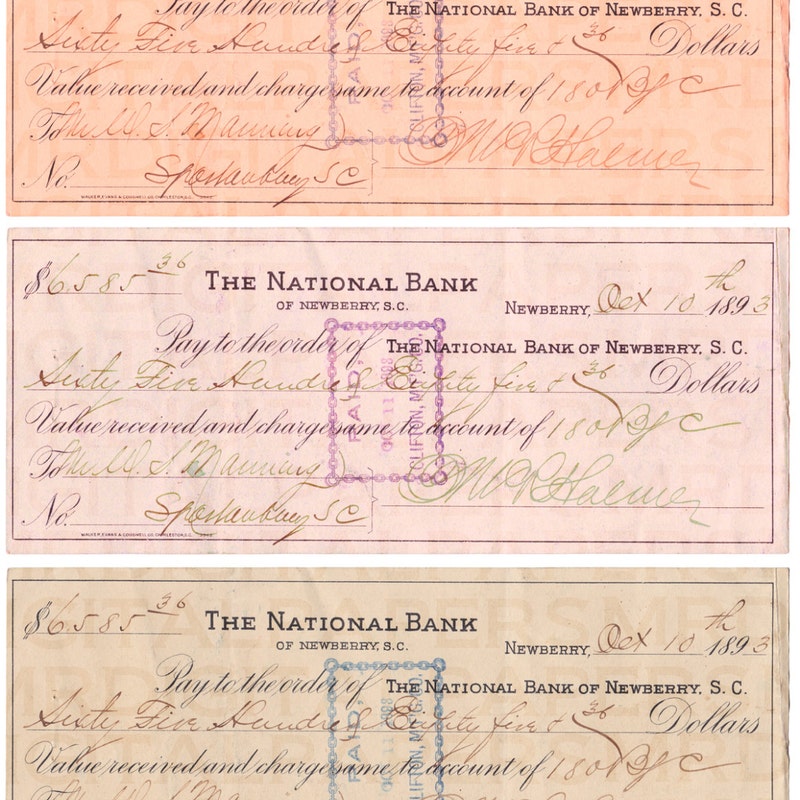 Pay to the order of THE NATIONAL BANK OF NEWBERRY, S. C.
Sixty Five Hundred Eighty five & 36 Dollars
Value received and charge same to account of 180 B/C
To Mr W. S. Manning
No. Spartanburg S C
WALKER, EVANS & COGSWELL CO. CHARLESTON, S.C.
PAID,
CLIFTON, M'F'G.
$6585 36
THE NATIONAL BANK
OF NEWBERRY, S.C.
NEWBERRY, Oct 10th 1893
Pay to the order of THE NATIONAL BANK OF NEWBERRY, S. C.
Sixty Five Hundred Eighty five & 36 Dollars
Value received and charge same to account of 180 B/C
To Mr W. S. Manning
No. Spartanburg S C
WALKER, EVANS & COGSWELL CO. CHARLESTON, S.C.
PAID,
OC 11
CLIFTON, M'F'G.
$6585 36
THE NATIONAL BANK
OF NEWBERRY, S.C.
NEWBERRY, Oct 10th 1893
Pay to the order of THE NATIONAL BANK OF NEWBERRY, S. C.
Sixty Five Hundred Eighty five & 36 Dollars
Value received and charge same to account of 180 B/C
PAID,
OC 11